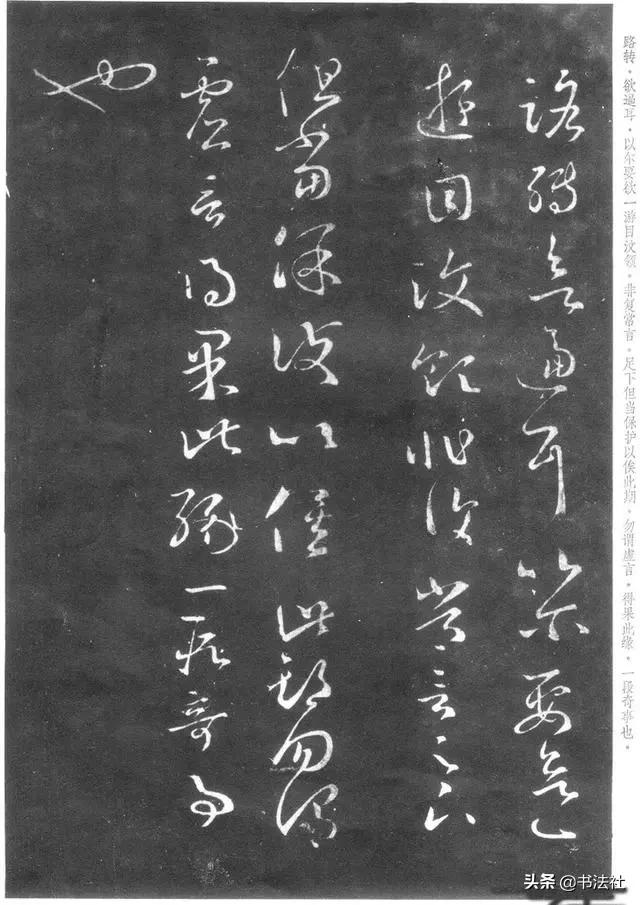 路转，欲逼耳，以尔要欲一游目汶领，非复常言，足下但当保护以俟此期，勿谓虚言，得果此缘，一段奇事也。
路轉欲逼耳以尔要欲一
遊目汶領非復常言足下
但當保護以俟此期勿謂
虛言得果此緣一段奇事
也
头条 @书法社